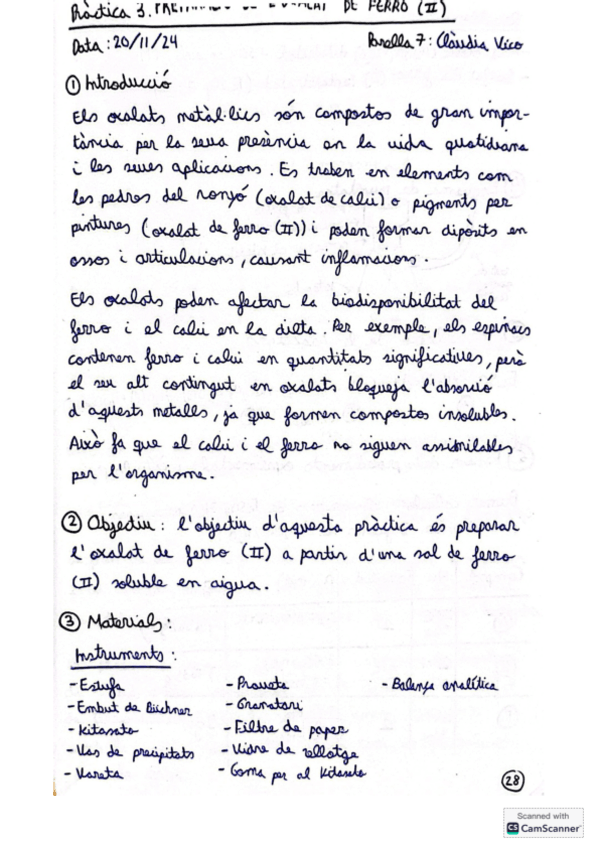 Pràctica 3. DE FERRO (II)
Data: 20/11/24 Parella 7: Clàudia Vico
① Introducció
Els oxalats metàl·lics són compostos de gran impor-
tància per la seua presència en la vida quotidiana
i les seues aplicacions. Es troben en elements com
les pedres del ronyó (oxalat de calci) o pigments per
pintures (oxalat de ferro (II)) i poden formar dipòsits en
ossos i articulacions, causant inflamacions.
Els oxalats poden afectar la biodisponibilitat del
ferro i el calci en la dieta. Per exemple, els espinacs
contenen ferro i calci en quantitats significatives, però
el seu alt contingut en oxalats bloqueja l'absorció
d'aquests metalls, ja que formen compostos insolubles.
Això fa que el calci i el ferro no siguen assimilables
per l'organisme.
② Objectiu: l'objectiu d'aquesta pràctica és preparar
l'oxalat de ferro (II) a partir d'una sal de ferro
(II) soluble en aigua.
③ Materials:
Instruments:
- Estufa - Proveta - Balança analítica
- Embut de Büchner - Granatari
- Kitasato - Filtre de paper
- Vas de precipitats - Vidre de rellotge
- Vareta - Goma per al Kitasato
28
Scanned with
CS CamScanner